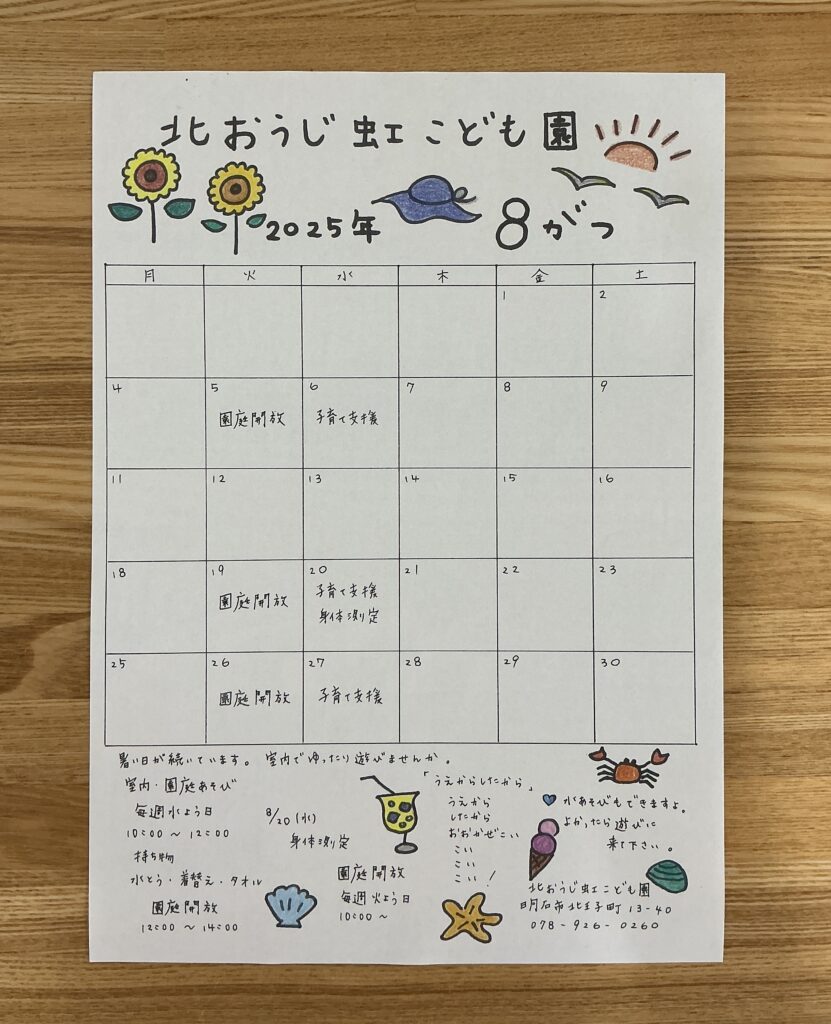 北おうじ虹こども園
2025年 8がつ
月 火 水 木 金 土
1 2
4 5 6 7 8 9
園庭開放 子育て支援
11 12 13 14 15 16
18 19 20 21 22 23
園庭開放 子育て支援
身体測定
25 26 27 28 29 30
園庭開放 子育て支援
暑い日が続いています。室内でゆったり遊びませんか。
室内・園庭あそび
毎週水よう日
10:00～12:00
持ち物
水とう・着替え・タオル
園庭開放
12:00～14:00
8/20(水)
身体測定
園庭開放
毎週火よう日
10:00～
「うえからしたから」
うえから
したから
おおかぜこい
こい
こい
こい!
水あそびもできますよ。
よかったら遊びに
来て下さい。
北おうじ虹こども園
明石市北王子町13-40
078-926-0260